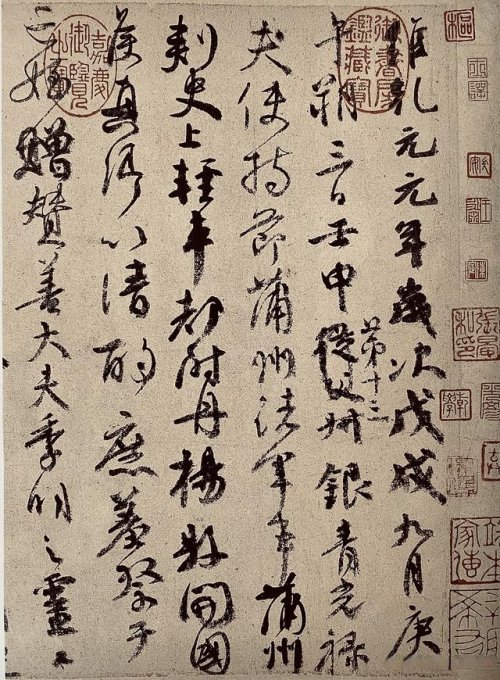 維乾元元年歲次戊戌九月庚
午朔三日壬申第十三從父叔銀青光祿
夫使持節蒲州諸軍事蒲州
刺史上輕車都尉丹楊縣開國
侯真卿以清酌庶羞祭于
亡姪贈贊善大夫季明之靈曰
御書房鑑藏寶
嘉慶御覽之寶
樞
張晏私印